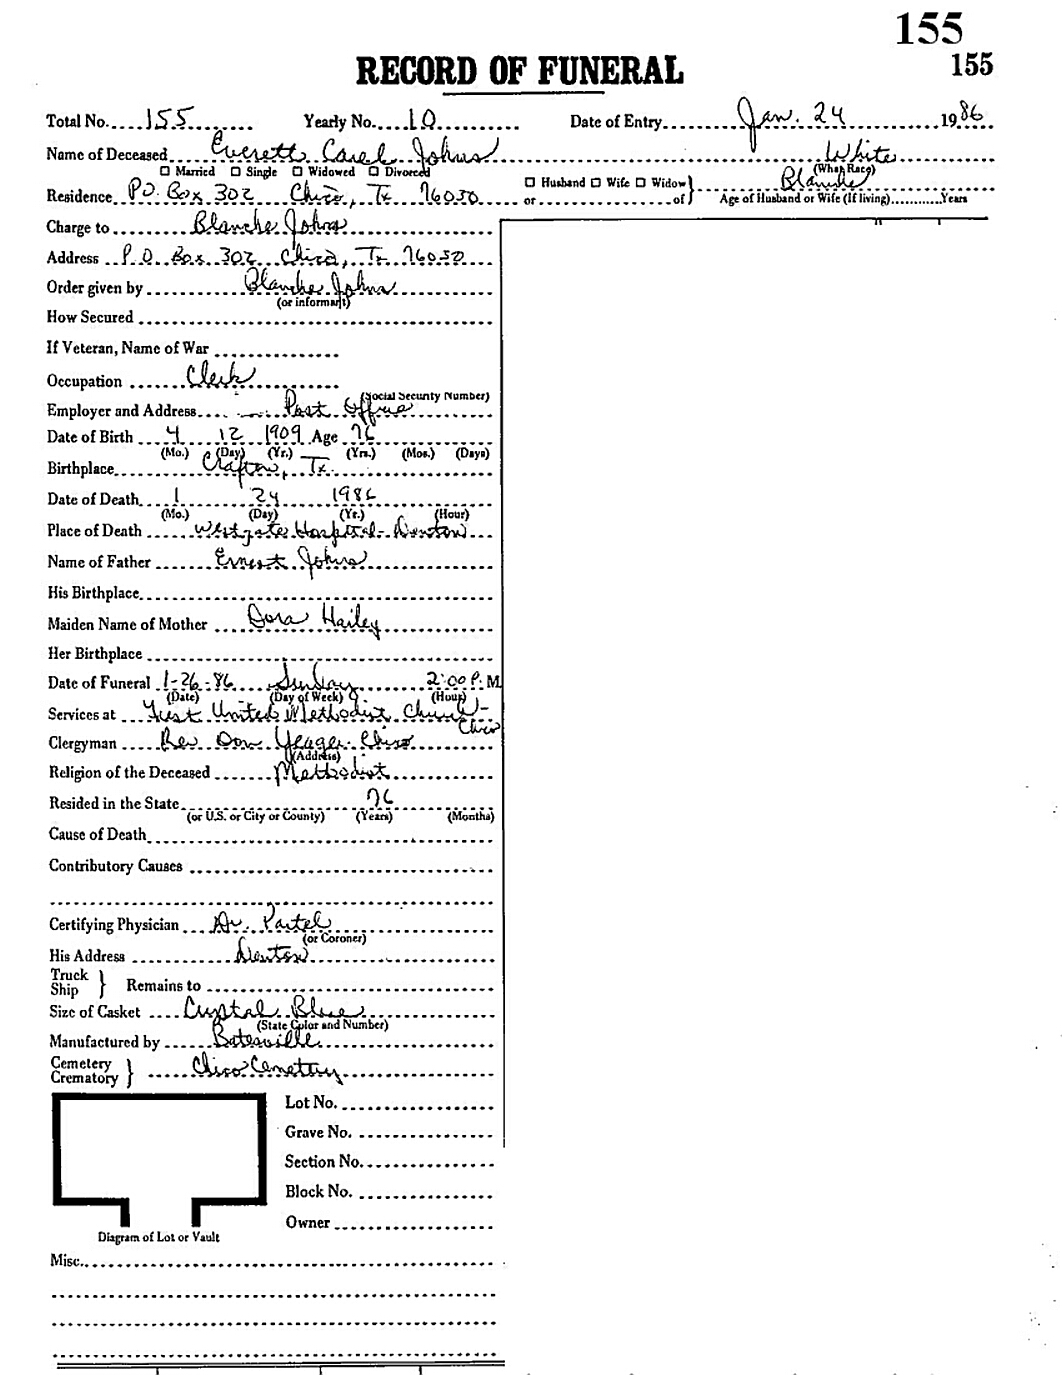 155
155
RECORD OF FUNERAL
Total No. 155 Yearly No. 10 Date of Entry Jan. 24 1986
Name of Deceased Everett Carel Johns White
☐ Married ☐ Single ☐ Widowed ☐ Divorced (What Race)
Residence P.O. Box 302 Chico, Tx 76030 ☐ Husband ☐ Wife ☐ Widow } or of Blanche Age of Husband or Wife (If living) Years
Charge to Blanche Johns
Address P.O. Box 302 Chico, Tx 76030
Order given by Blanche Johns
(or informant)
How Secured
If Veteran, Name of War
Occupation Clerk
(Social Security Number)
Employer and Address Post Office
Date of Birth 4 12 1909 Age 76
(Mo.) (Day) (Yr.) (Yrs.) (Mos.) (Days)
Birthplace Crafton, Tx
Date of Death 1 24 1986
(Mo.) (Day) (Yr.) (Hour)
Place of Death Westgate Hospital - Denton
Name of Father Ernest Johns
His Birthplace
Maiden Name of Mother Dora Hailey
Her Birthplace
Date of Funeral 1-26-86 Sunday 2:00 P. M.
(Date) (Day of Week) (Hour)
Services at First United Methodist Church - Chico
Clergyman Rev Don Yeager - Chico
(Address)
Religion of the Deceased Methodist
Resided in the State 76
(or U.S. or City or County) (Years) (Months)
Cause of Death
Contributory Causes
Certifying Physician Dr. Partel
(or Coroner)
His Address Denton
Truck
Ship } Remains to
Size of Casket Crystal Blue
(State Color and Number)
Manufactured by Batesville
Cemetery
Crematory } Chico Cemetery
Lot No.
Grave No.
Section No.
Block No.
Owner
Diagram of Lot or Vault
Misc.